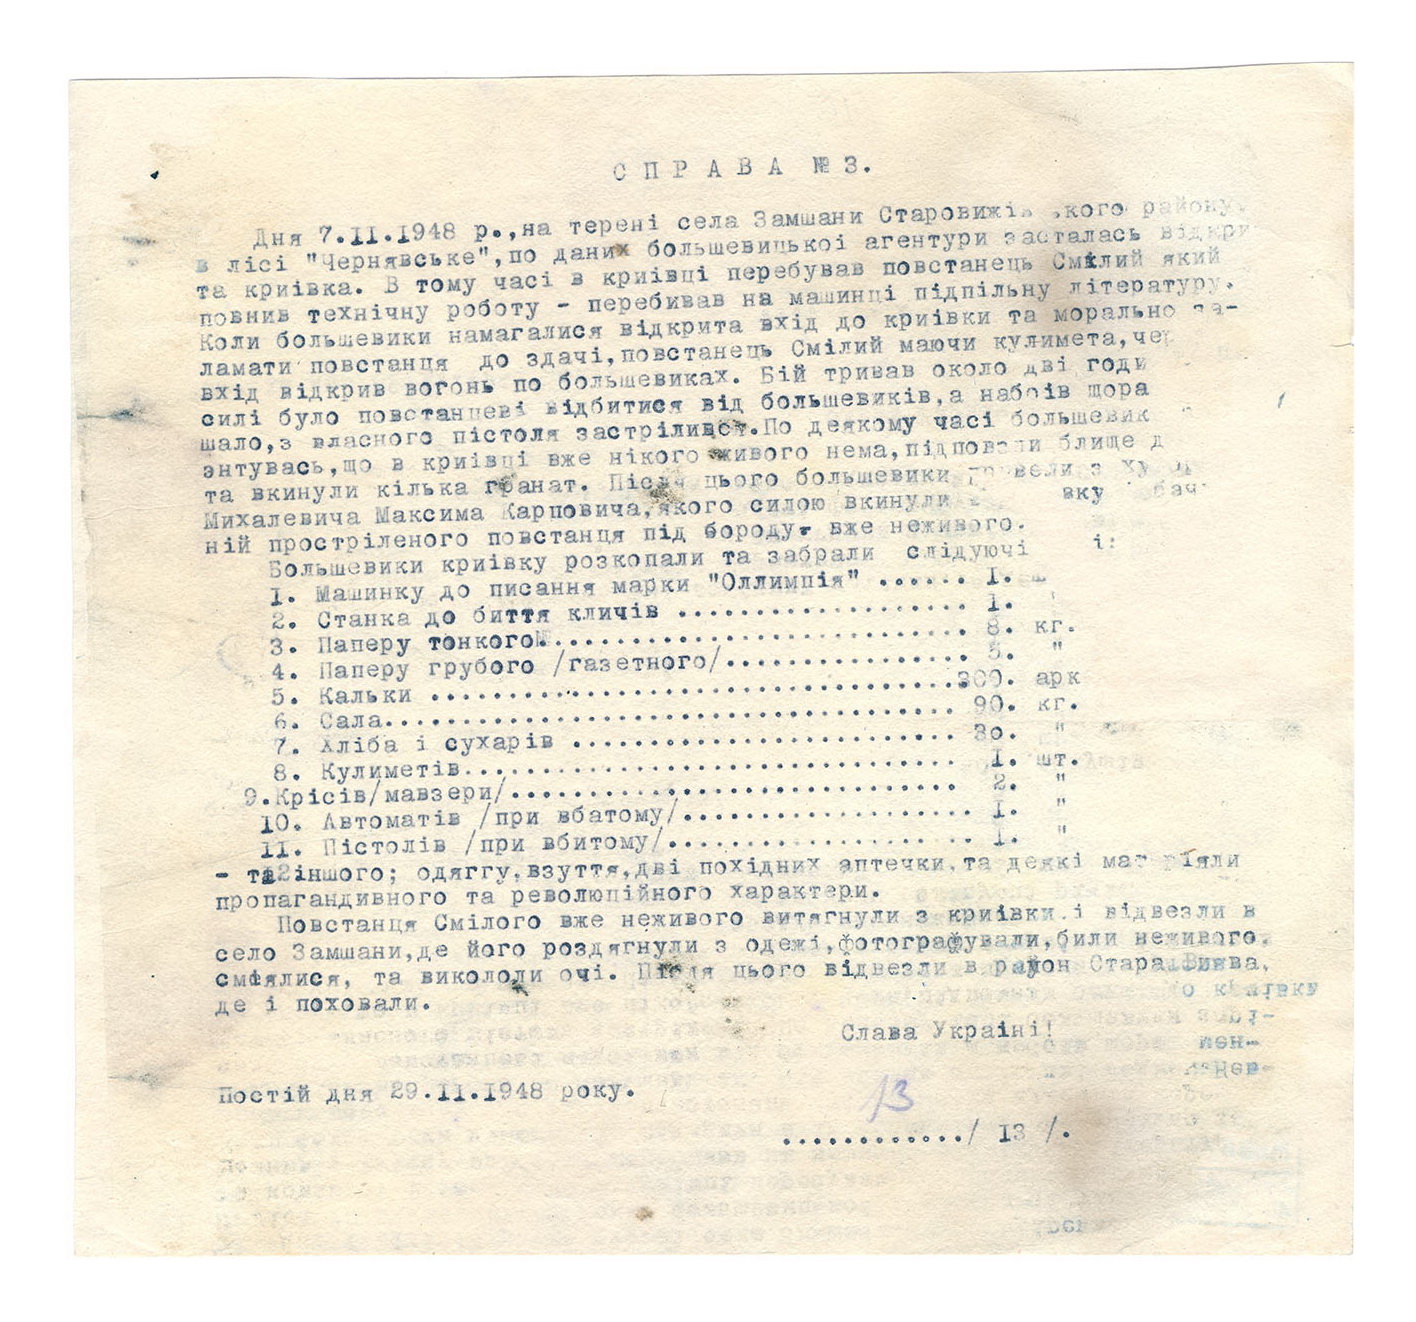 СПРАВА №3.
Дня 7.II.1948 р.,на терені села Замшани Старовижів ,кого району
в лісі "Чернявське",по даних большевицькоі агентури засталась відкри
та криівка. В тому часі в криівці перебував повстанець Смілий який
повнив технічну роботу - перебивав на машинці підпільну літературу.
Коли большевики намагалися відкрита вхід до криівки та морально за-
ламати повстанця до здачі,повстанець Смілий маючи кулимета,чер
вхід відкрив вогонь по большевиках. Бій тривав около дві годи
силі було повстанцеві відбитися від большевиків,а набоів щора
шало,з власного пістоля застрілився.По деякому часі большевик
энтувась,що в криівці вже нікого живого нема,підповзли блище д
та вкинули кілька гранат. Після цього большевики привели з
Михалевича Максима Карповича,якого силою вкинули вку бач
ній простріленого повстанця під бороду- вже неживого.
Большевики криівку розкопали та забрали слідуючі і:
1. Машинку до писання марки "Оллимпія" ...... 1.
2. Станка до биття кличів .................. 1.
3. Паперу тонкого........................... 8. кг.
4. Паперу грубого /газетного/............... 5. "
5. Кальки ..................................300. арк
6. Сала.................................... 90. кг.
7. Хліба і сухарів ........................ 3о. "
8. Кулиметів............................... 1. шт.
9.Крісів/мавзери/............................ 2. "
10. Автоматів /при вбатому/.................. 1. "
11. Пістолів /при вбитому/................... 1. "
- та іншого; одяггу,взуття,дві похідних аптечки,та деякі матеріяли
пропагандивного та революційного характери.
Повстанця Смілого вже неживого витягнули з криівки.і відвезли в
село Замшани,де його роздягнули з одежі,фотографували,били неживого,
сміялися, та викололи очі. Після цього відвезли в район Стара Вижва,
де і поховали.
о криівку
Слава Украіні!
мен-
Постій дня 29.II.1948 року.
13
............./ 13 /.